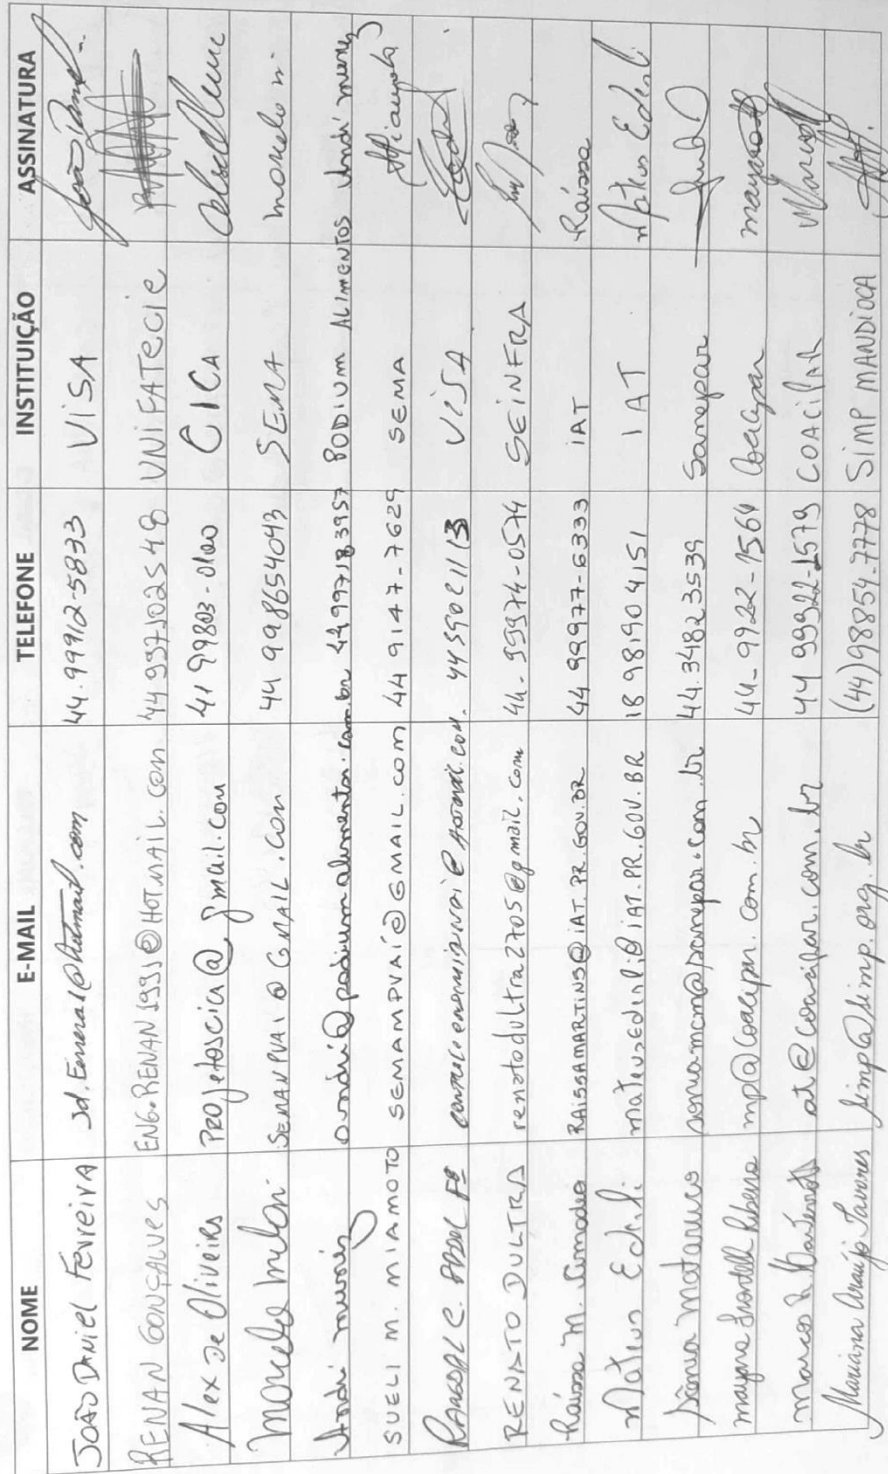 NOME E-MAIL TELEFONE INSTITUIÇÃO ASSINATURA
JOÃO DANIEL FERREIRA @hotmail.com 44.99912-5833 VISA João Daniel
RENAN GONÇALVES ENG.RENAN1991@HOTMAIL.COM. 44 997102548 UNIFATECIE
Alex de Oliveira Projetoscia@gmail.com 41 99803-0100
Marcelo SEMAPVAI@GMAIL.COM 44 998654043 SEMA Marcelo
André muniz andre@podiumalimentos.com.br 44 99718 3957 PODIUM ALIMENTOS André muniz
SUELI M. MIAMOTO SEMAMPVAI@GMAIL.COM 44 9147-7629 SEMA
C. Fº @hotmail.com. VISA
RENATO DULTRA renatodultra2705@gmail.com 44-99974-0574 SEINFRA
Raissa M. RAISSAMARTINS@IAT.PR.GOV.BR 44 99977-6333 IAT Raissa
Mateus Ederli mateusederli@IAT.PR.GOV.BR 18 981904151 IAT Mateus Ederli
Sônia soniamcm@sanepar.com.br 44.34823539 Sanepar
mayara Ribeiro mp@coacipar.com.br 44-9922-1564 Coacipar mayara
Marco at@coacipar.com.br 44 99922-1579 COACIPAR
Mariana Araujo Tavares simp@simp.org.br (44)98854-7778 SIMP MANDIOCA